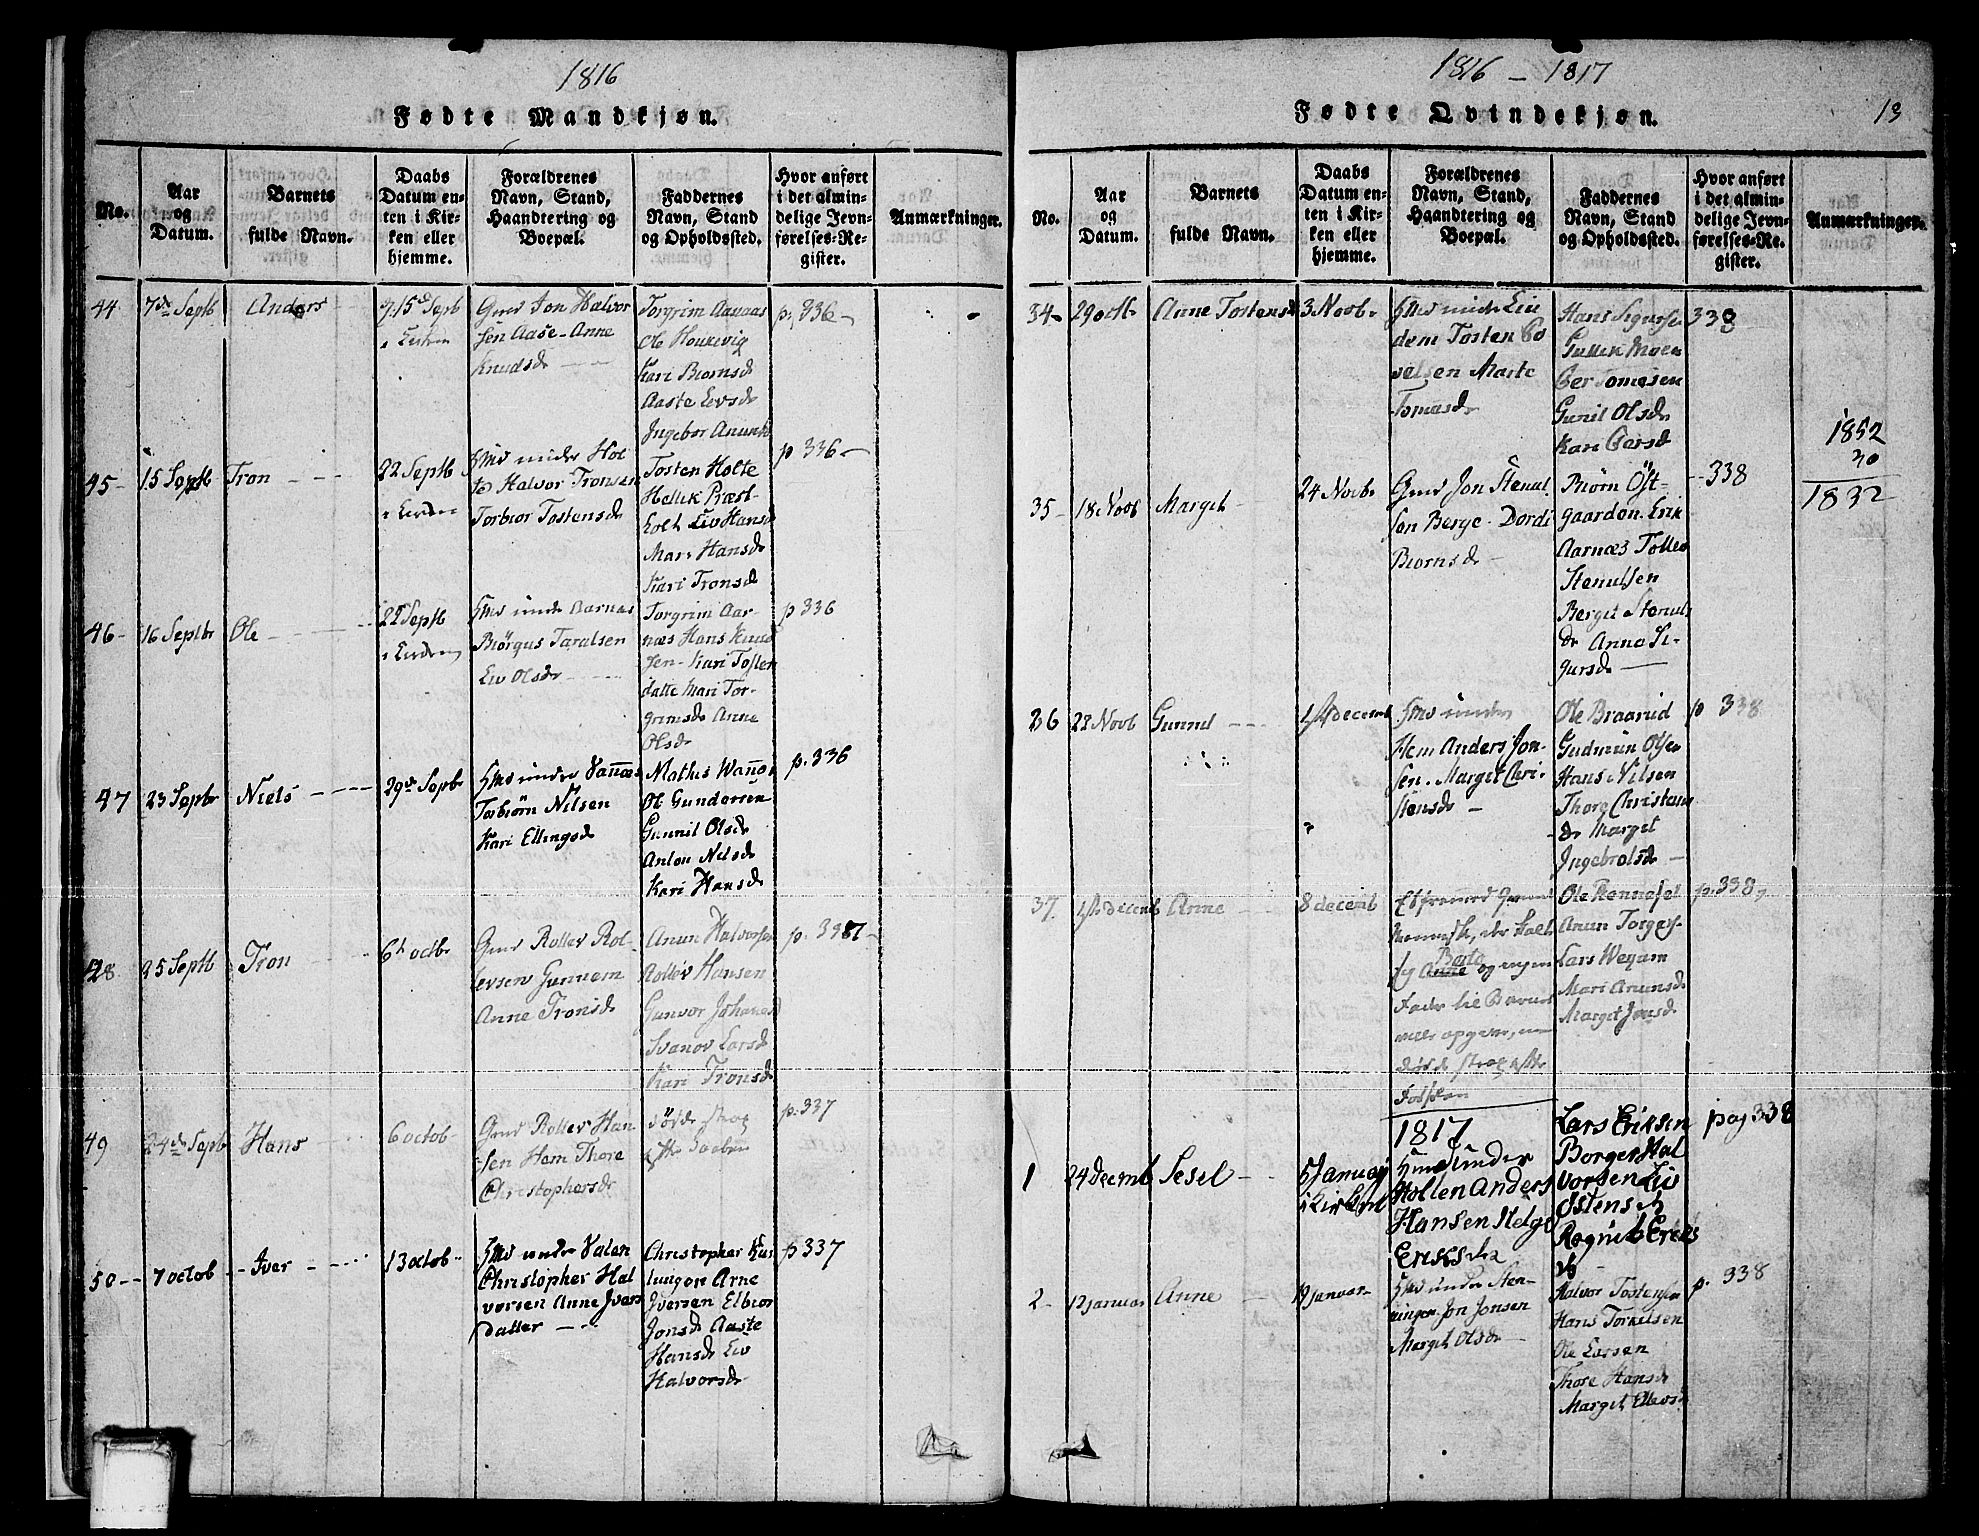 1816
Fødte Mandkjøn.
No.
Aar
og
Datum.
Barnets
fulde Navn.
Daabs
Datum en-
ten i Kir-
ken eller
hjemme.
Forældrenes
Navn, Stand,
Haandtering og
Boepæl.
Faddernes
Navn, Stand
og Opholdssted.
Hvor anført
i det almin-
delige Jevn-
førelses-Re-
gister.
Anmærkninger.
44
7de Septb
Anders
15 Septb
Gmd Jon Halvor
sen Aase - Anne
Knudsd
Torgrim Aanaas
Ole Houkevig
Kari Biornsd
Aaste Levsd
Ingebor Anunsd
p. 336
45
15 Septb
Tron
22 Septb
Hmd under Hol
te Halvor Tronsen
Torbior Tostensd
Tosten Holte
Hellik Præst-
holt Liv Hansd
Mari Hansd
Kari Tronsd
p 336
46
16 Septbr
Ole
22 Septb
Hmd unde Aarnas
Biörgus Taralsen
Liv Olsd
Torgrim Aar-
næs Hans Knud
sen - Kari Tosten
datte Mari Tor-
grimsd Anne
Olsd
p 336
47
23 Septbr
Niels
29de Septbr
Hmd under Vanaas
Torbiörn Nilsen
Kari Ellingsd
Mathis
Ole Gundersen
Gunnil Olsd
Anlou Nilsd
Kari Hansd
p. 336
48
25 Septb
Tron
6te octbr
Gmd Rollev Rol-
levsen Gunnem
Anne Tronsd
Anun Halvorsen
Rollev Hansen
Gunvor Johanesd
Svanov Larsd
Kari Tronsd
49
24de Septb
Hans
6 octob
Gmd Rollev Han
sen Hem Thore
Christophersd
döde strag
efter Daaben
p. 337
50
7 octob
Iver
13 octob
Hmd under Valen
Christopher Hal
vorsen Anne Ivers
datter
Christopher Kas
Arne
Iversen Elbior
Jonsd Aaste
Hansd Liv
Halvorsd
p 337
1816 - 1817
Fødte Qvindekjøn.
13
No.
Aar
og
Datum.
Barnets
fulde Navn.
Daabs
Datum en-
ten i Kir-
ken eller
hjemme.
Forældrenes
Navn, Stand,
Haandtering og
Boepæl.
Faddernes
Navn, Stand
og Opholdssted.
Hvor anført
i det almin-
delige Jevn-
førelses-Re-
gister.
Anmærkninger.
34
29 octb
Anne Tostensd
3 Novb
Hmd under Liv
dem Tosten Po
velsen Marte
Tomasd
Hans Sigursen
Gullik Moen
Per Tomesen
Gunil Olsd
Kari Persd
338
1852
20
1832
35
18 Novb
Margit
24 Novb
Gmd Jon Stenul
sen Berge - Dordi
Biornsd
Biörn Öst-
gaarden Erik
Aarnæs Tollev
Stenulsen
Berget Stenuls
d Anne Si-
gursd
338
36
22 Novb
Gunnel
1ste decemb
Hmd under
Hem Anders Jon-
sen. Margit Chri-
stensd
Ole Braarud
Gudmun Olsen
Hans Nilsen
Thorg Christens
d Marget
Ingebrolsd
p 338
37
1ste decemb
Anne
8 decemb
Et fremmed Qvinde
Mennisk, der kalte
sig Anne Berte og ingen
Fader til Barnet
ville opgive, en
döde strag efter
Ole Rennesel
Anun Torgers
Lars Wegam
Mari Anunsd
Margit Jensd
p. 338
1817
1
24 decemb
Sesel
5 Januarj
i Kirken
Hmd under
Holten Anders
Hansen Helge
Eriksda
Lars Eriksen
Borger Hal
vorsen Liv
Østensd
Rognil Eriks
d
pag 338
2
12 januar
Anne
19 januar
Hmd under Sten-
ningen Jon Jonsen
Margit Olsd
Halvor Tostensen
Hans Torkilsen
Ole Larsen
Thore Hansd
Margit Ellevsd
p. 338